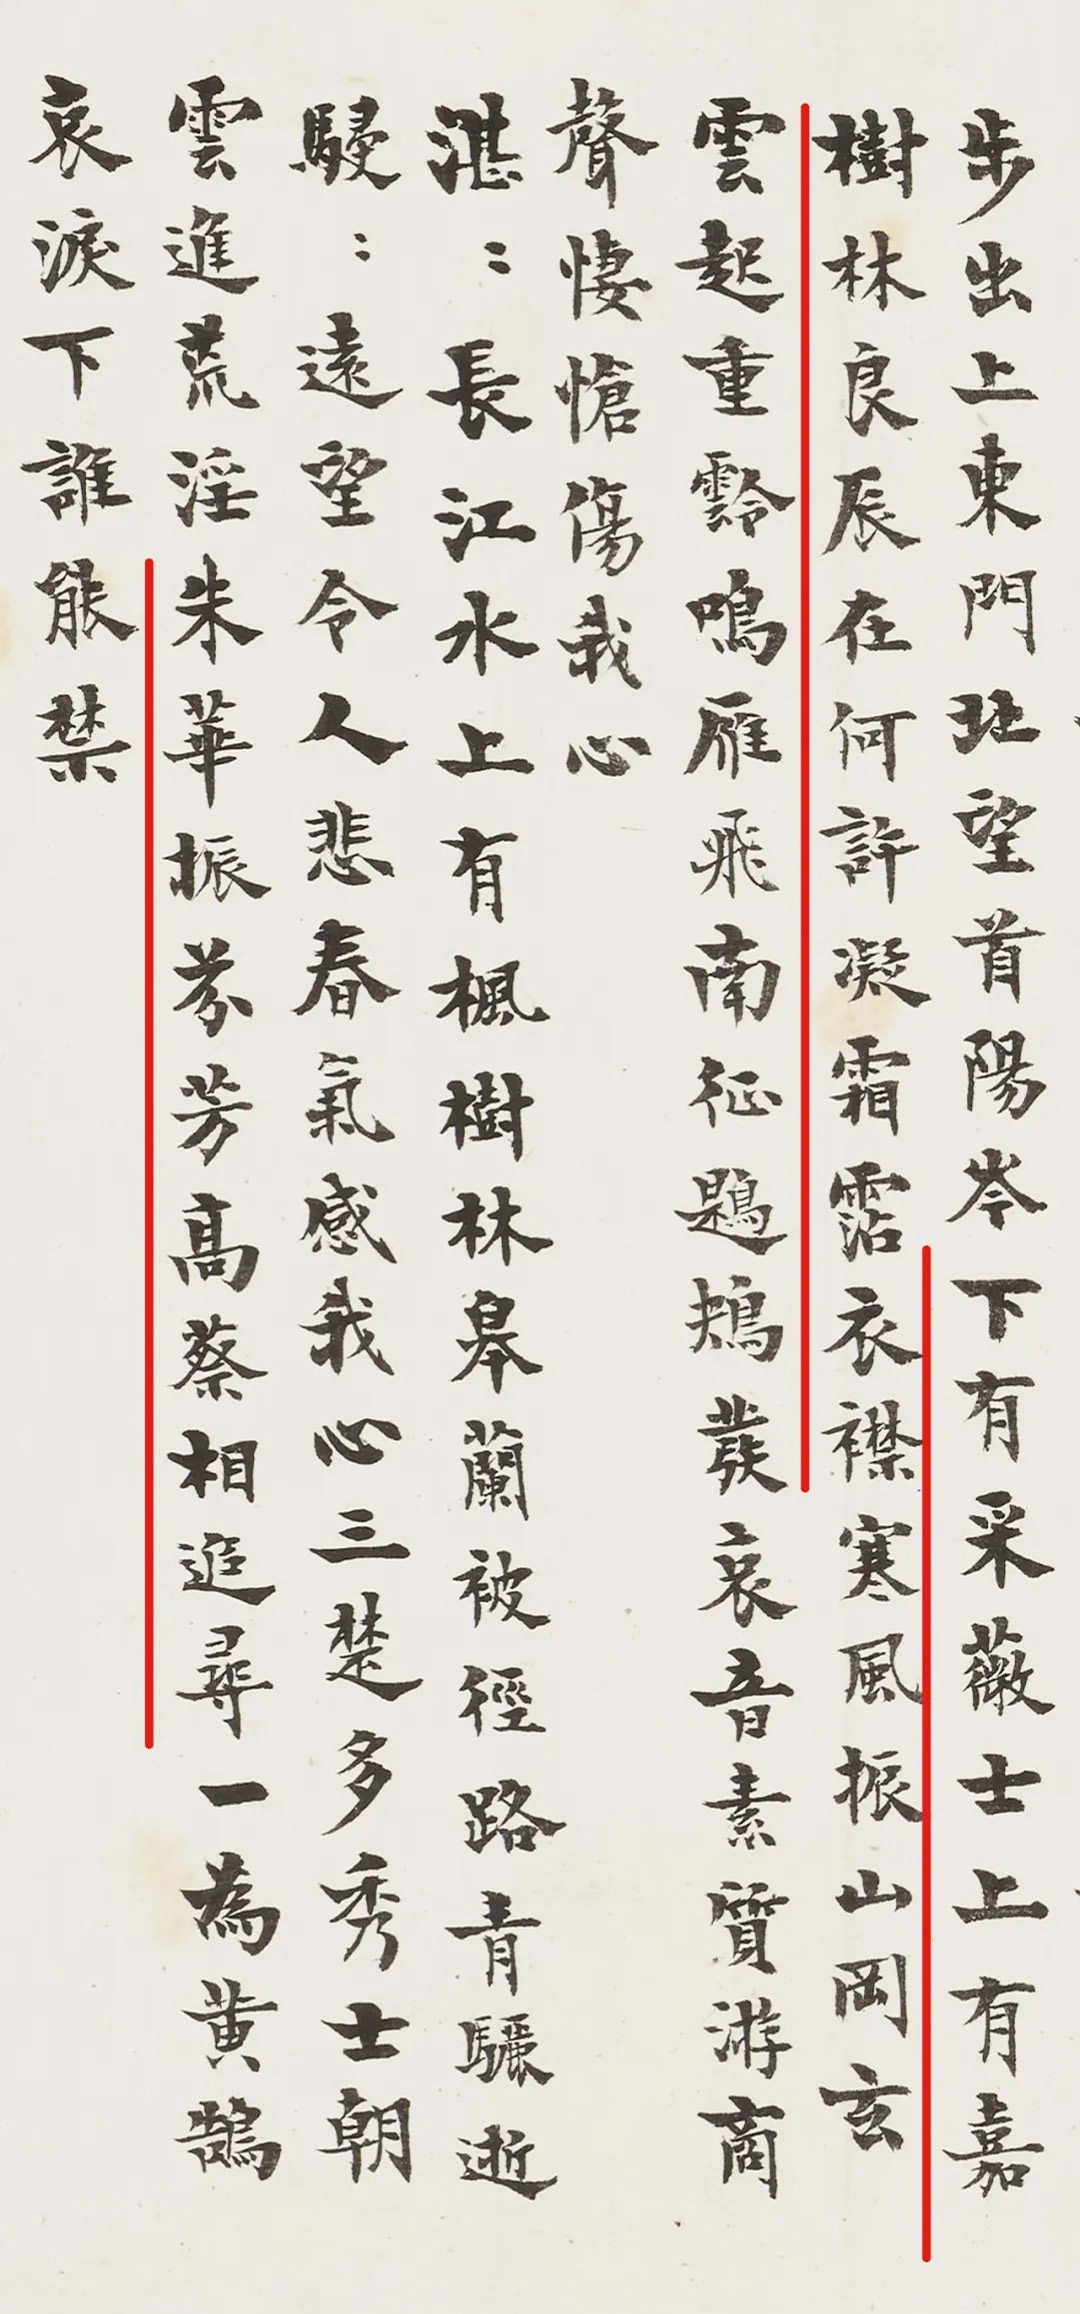 步出上東門北望首陽岑下有采薇士上有嘉
樹林良辰在何許凝霜霑衣襟寒風振山岡玄
雲起重霒鳴雁飛南征鶗鴂發哀音素質游商
聲悽愴傷我心
湛：長江水上有楓樹林皋蘭被徑路青驪逝
駸：遠望令人悲春氣感我心三楚多秀士朝
雲進荒淫朱華振芬芳高蔡相追尋一為黃鵠
哀淚下誰能禁